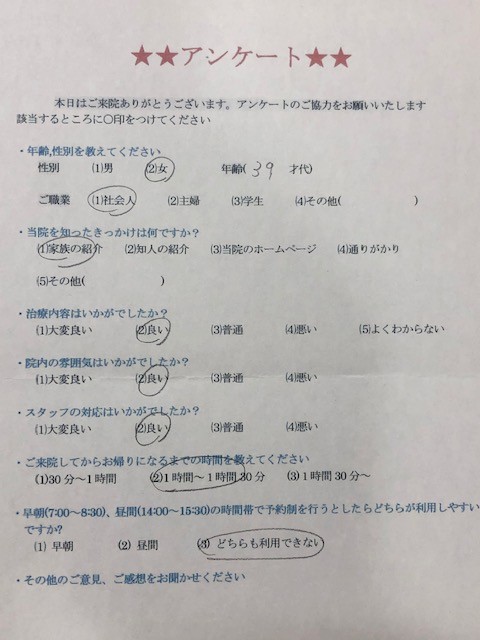 ★★アンケート★★
本日はご来院ありがとうございます。アンケートのご協力をお願いいたします
該当するところに〇印をつけてください
・年齢,性別を教えてください
性別 (1)男 (2)女 年齢( 39 才代)
ご職業 (1)社会人 (2)主婦 (3)学生 (4)その他( )
・当院を知ったきっかけは何ですか?
(1)家族の紹介 (2)知人の紹介 (3)当院のホームページ (4)通りがかり
(5)その他( )
・治療内容はいかがでしたか?
(1)大変良い (2)良い (3)普通 (4)悪い (5)よくわからない
・院内の雰囲気はいかがでしたか?
(1)大変良い (2)良い (3)普通 (4)悪い
・スタッフの対応はいかがでしたか?
(1)大変良い (2)良い (3)普通 (4)悪い
・ご来院してからお帰りになるまでの時間を教えてください
(1)30分～1時間 (2)1時間～1時間30分 (3)1時間30分～
・早朝(7:00～8:30)、昼間(14:00～15:30)の時間帯で予約制を行うとしたらどちらが利用しやすい
ですか?
(1) 早朝 (2) 昼間 (3) どちらも利用できない
・その他のご意見、ご感想をお聞かせください